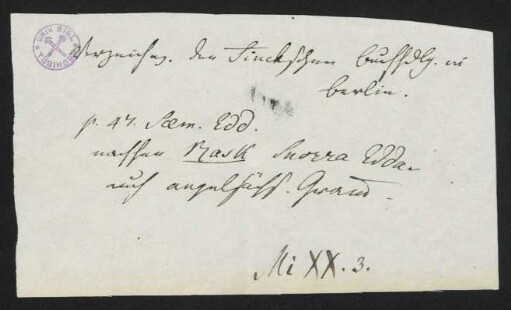 Verzeichn. der Finckschen Buchhdlg. in
Berlin.
p. 47. Sæm. Edd.
nachher Rask Snorra Edda
auch angelsächs. Gramm.
Mi XX. 3.